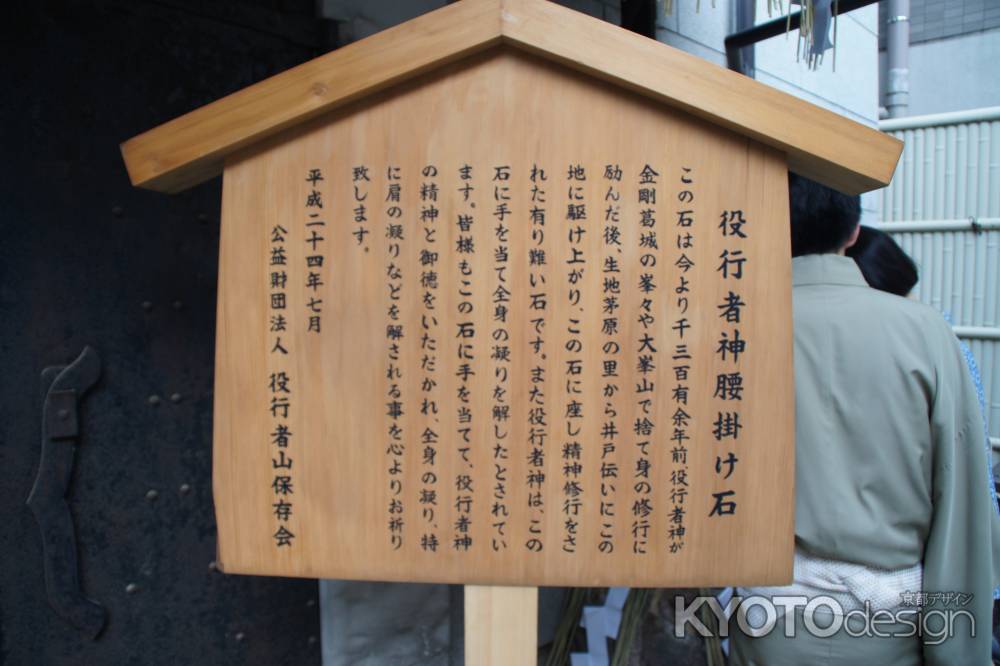 役行者神腰掛け石
この石は今より千三百有余年前、役行者神が
金剛葛城の峯々や大峯山で捨て身の修行に
励んだ後、生地茅原の里から井戸伝いにこの
地に駆け上がり、この石に座し精神修行をさ
れた有り難い石です。また役行者神は、この
石に手を当て全身の凝りを解したとされてい
ます。皆様もこの石に手を当てて、役行者神
の精神と御徳をいただかれ、全身の凝り、特
に肩の凝りなどを解される事を心よりお祈り
致します。
平成二十四年七月
公益財団法人 役行者山保存会
京都デザイン
KYOTOdesign